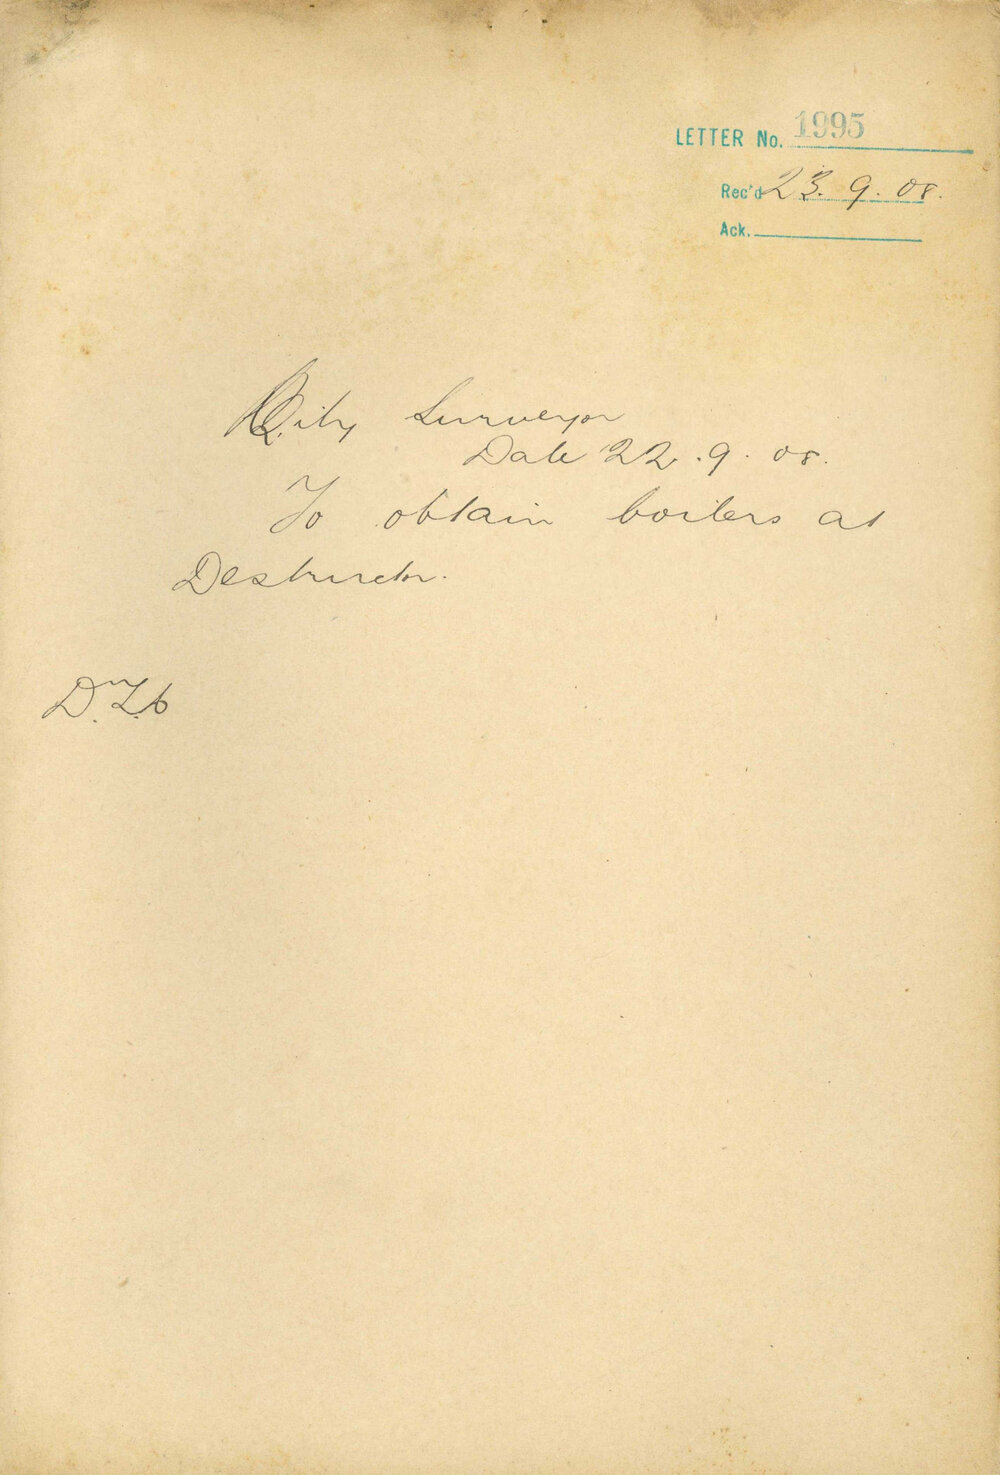 LETTER No. 1995
Rec'd 23. 9. 08.
Ack.
City Surveyor
Date 22. 9. 08.
To obtain boilers at
Destructor.